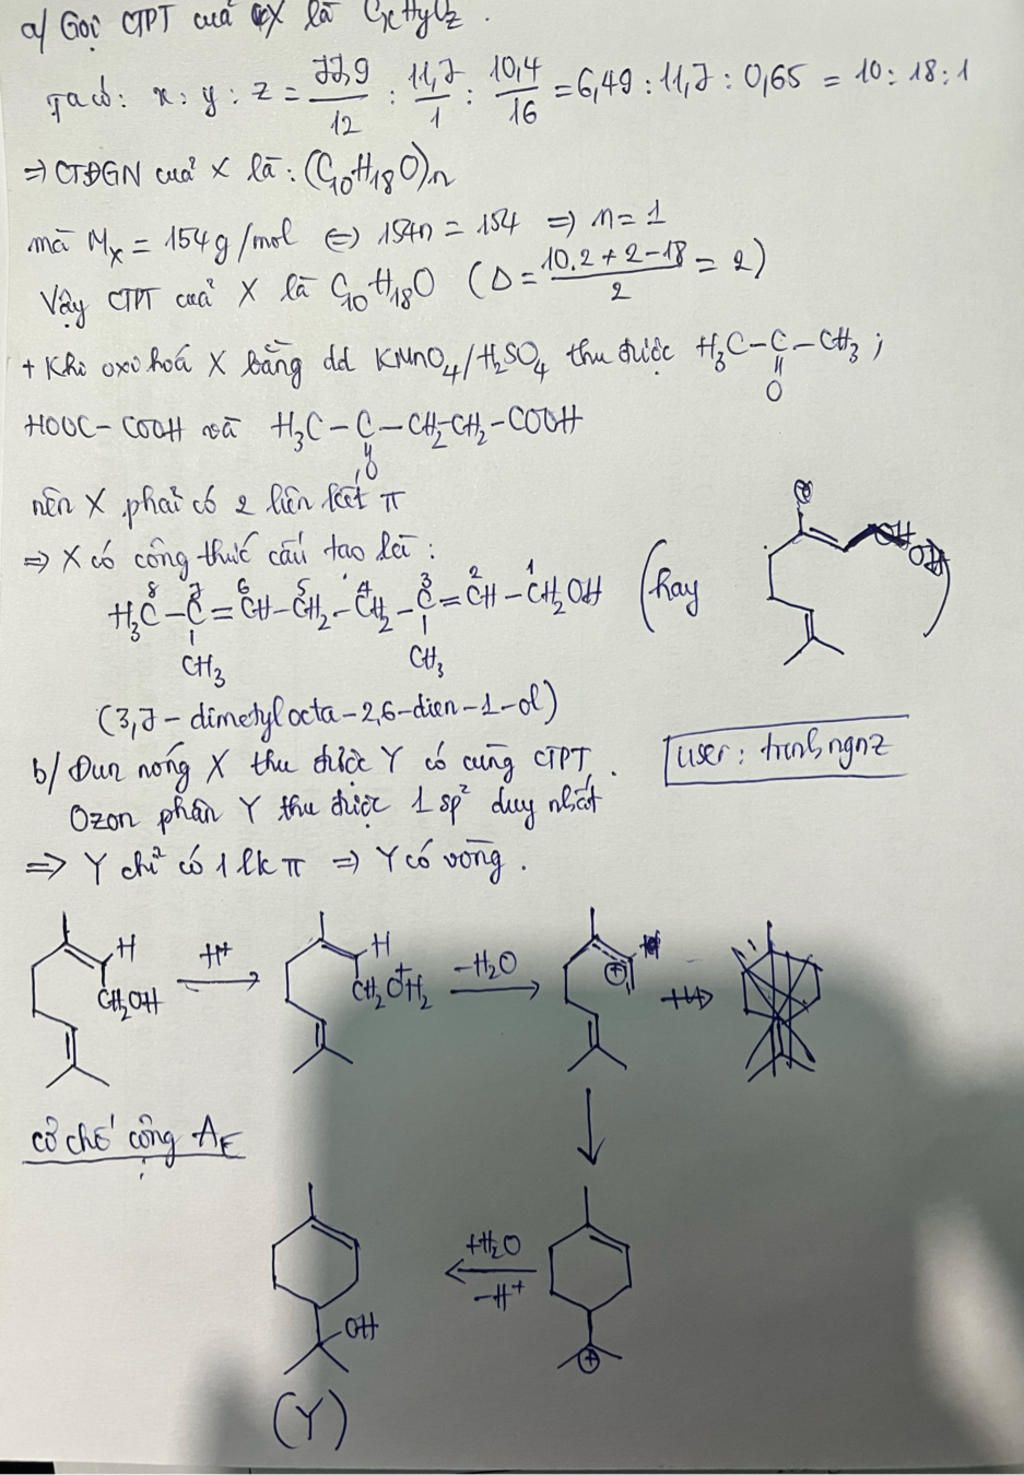 a/ Gọi CTPT của X là CxHyOz.
Ta có: x : y : z = 77,9/12 : 11,7/1 : 10,4/16 = 6,49 : 11,7 : 0,65 = 10 : 18 : 1
⇒ CTĐGN của X là: (C10H18O)n
mà Mx = 154g/mol ⇔ 154n = 154 ⇒ n = 1
Vậy CTPT của X là C10H18O (Δ = 10.2 + 2 - 18 / 2 = 2)
+ Khi oxi hoá X bằng dd KMnO4/H2SO4 thu được H3C-C-CH3 ;
O
HOOC-COOH và H3C-C-CH2-CH2-COOH
O
nên X phải có 2 liên kết π
⇒ X có công thức cấu tạo là:
8 7 6 5 4 3 2 1
H3C-C=CH-CH2-CH2-C=CH-CH2OH (hay OH)
CH3 CH3
(3,7-dimetylocta-2,6-dien-1-ol)
user: trnhngnz
b/ Đun nóng X thu được Y có cùng CTPT.
Ozon phân Y thu được 1 sp² duy nhất
⇒ Y chỉ có 1 lk π ⇒ Y có vòng.
H CH2OH H+ H CH2OH2 + -H2O +
cơ chế cộng AE
+H2O
-H+
OH +
(Y)